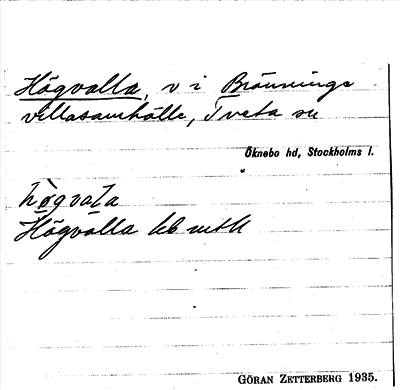 Högvalla, v i Brännings
villasamhälle, Tveta sn
Öknebo hd, Stockholms l.
hògvala
Högvalla kb mtll
GÖRAN ZETTERBERG 1935.